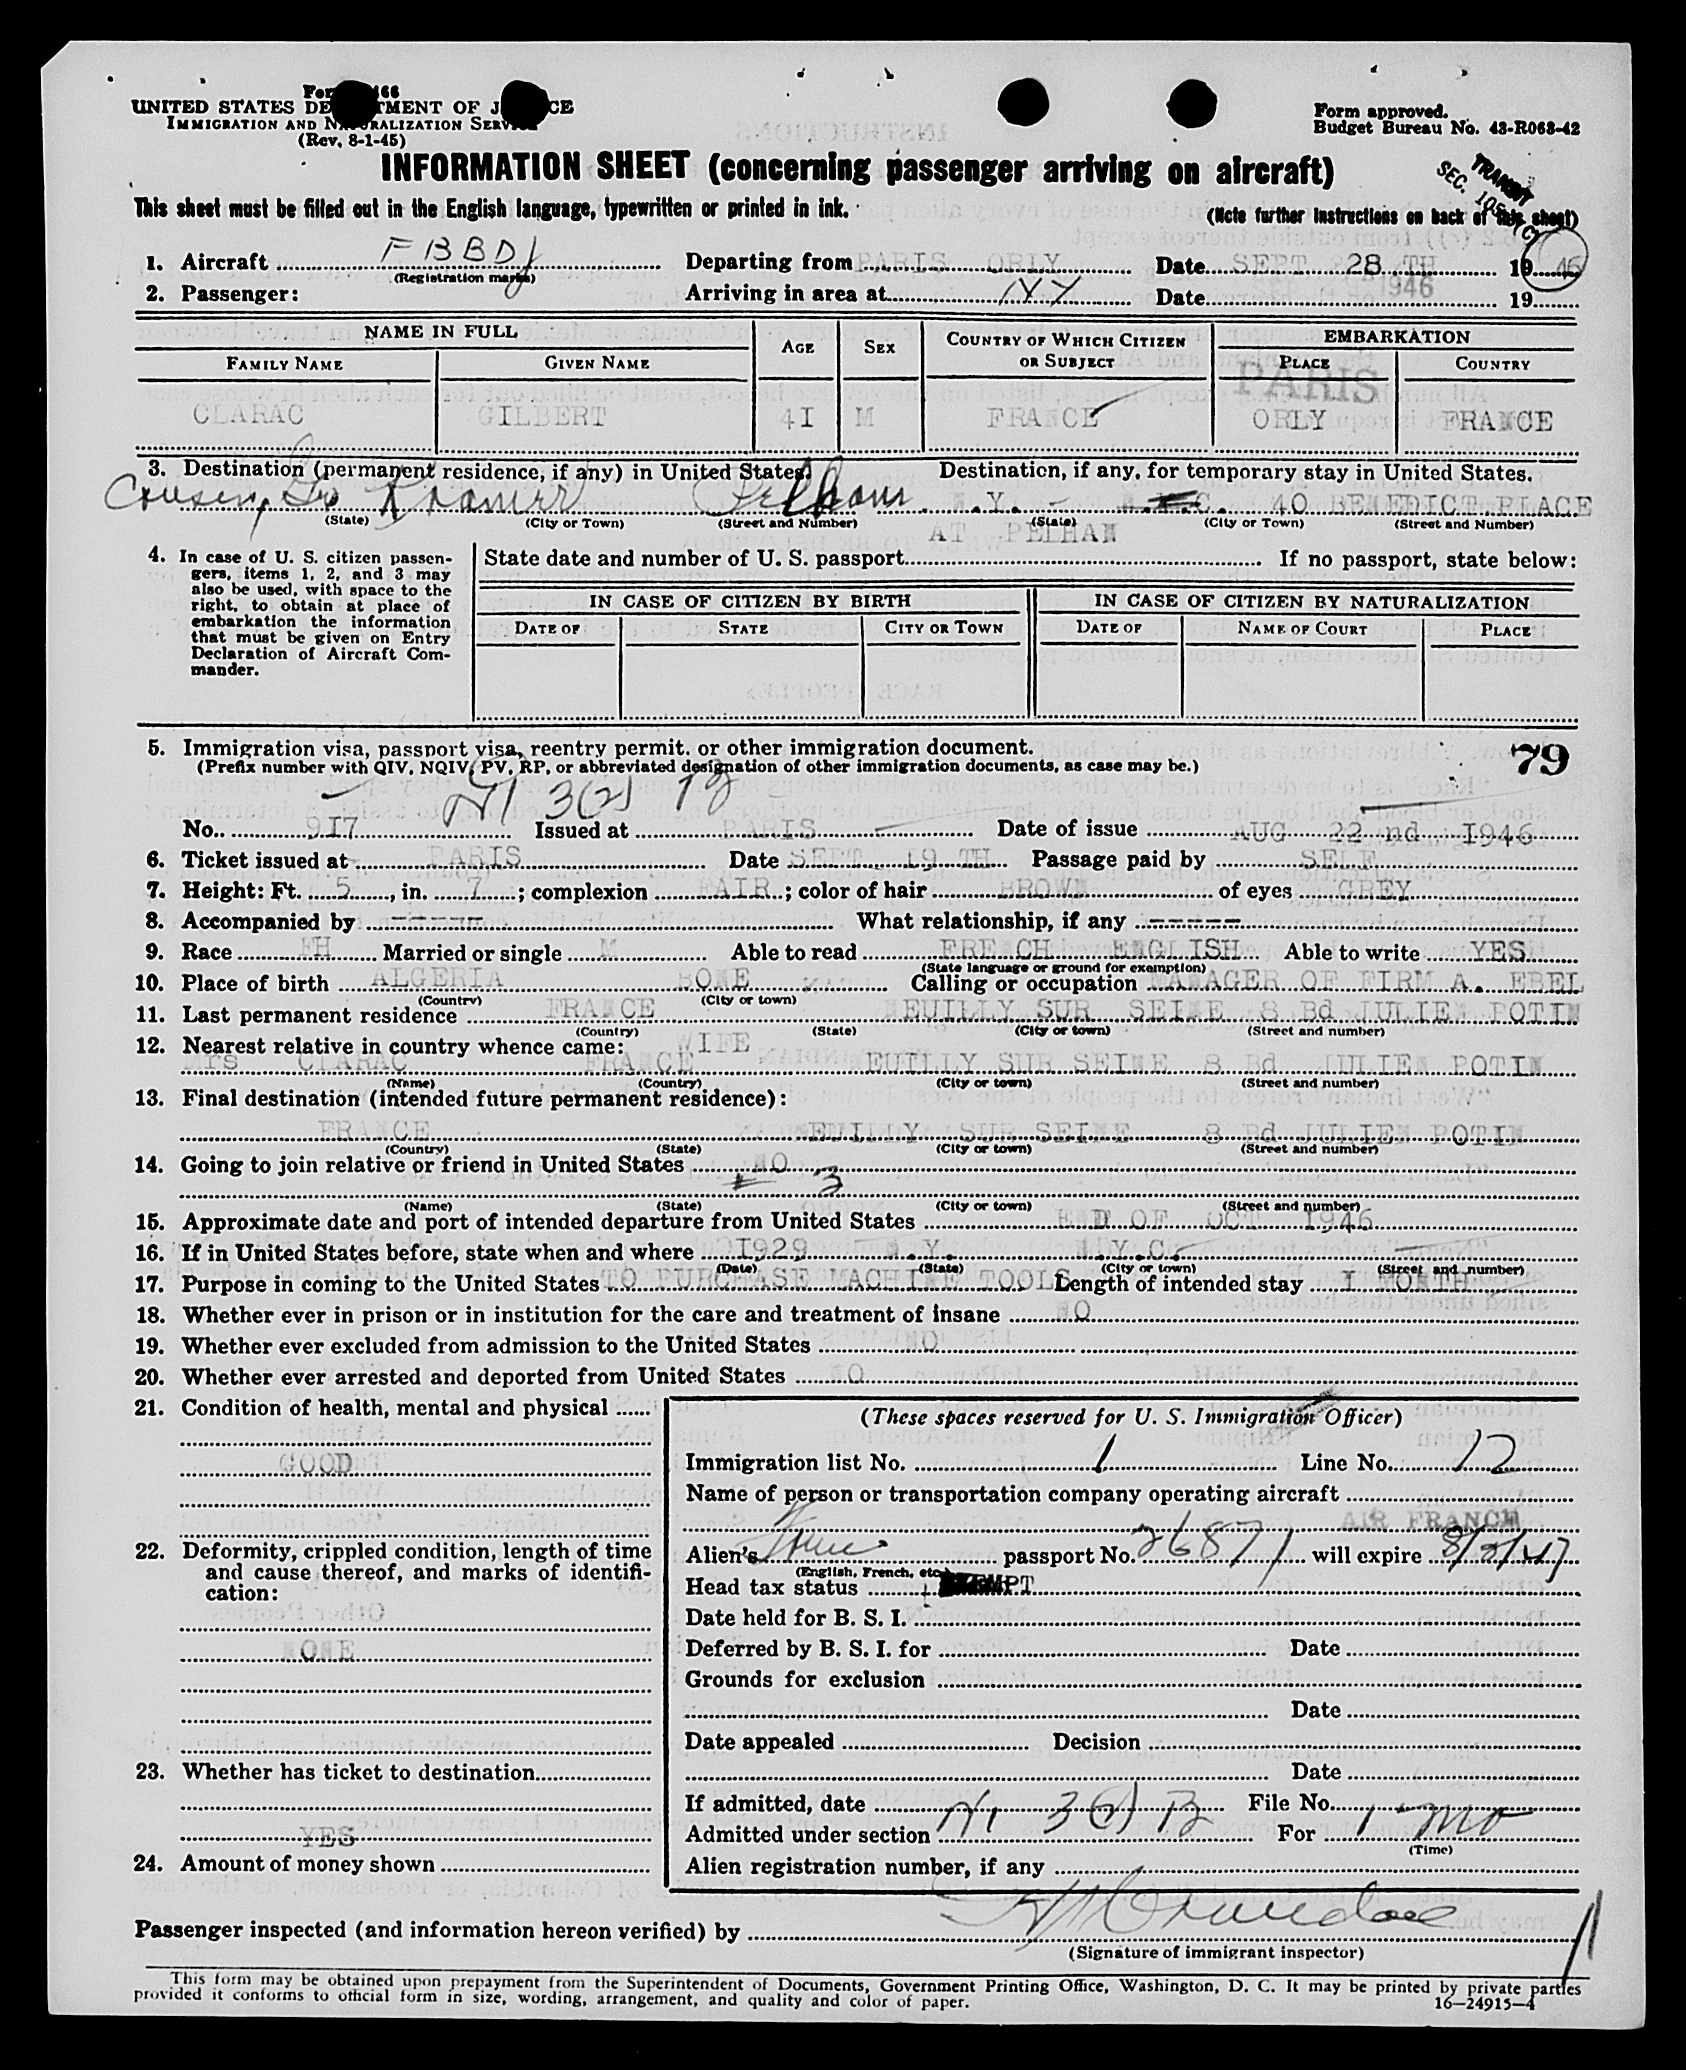 UNITED STATES DEPARTMENT OF JUSTICE
IMMIGRATION AND NATURALIZATION SERVICE
(Rev. 8-1-45)
Form approved.
Budget Bureau No. 43-R068-42
INFORMATION SHEET (concerning passenger arriving on aircraft)
TRANSIT
SEC.
This sheet must be filled out in the English language, typewritten or printed in ink.
(Note further instructions on back of this sheet)
1. Aircraft F BBDJ Departing from PARIS ORLY Date SEPT 28 TH 1946
(Registration marks)
2. Passenger: Arriving in area at Date 1946 19
NAME IN FULL AGE SEX COUNTRY OF WHICH CITIZEN OR SUBJECT EMBARKATION
FAMILY NAME GIVEN NAME PLACE COUNTRY
PARIS
CLARAC GILBERT 4I M FRANCE ORLY FRANCE
3. Destination (permanent residence, if any) in United States. Destination, if any, for temporary stay in United States.
Cousin, Kramer Pelham N.Y. - 40 BENEDICT PLACE
(State) (City or Town) (Street and Number) (State) (City or Town) (Street and Number)
AT PELHAM
4. In case of U. S. citizen passen-
gers, items 1, 2, and 3 may
also be used, with space to the
right, to obtain at place of
embarkation the information
that must be given on Entry
Declaration of Aircraft Com-
mander.
State date and number of U. S. passport If no passport, state below:
IN CASE OF CITIZEN BY BIRTH IN CASE OF CITIZEN BY NATURALIZATION
DATE OF STATE CITY OR TOWN DATE OF NAME OF COURT PLACE
5. Immigration visa, passport visa, reentry permit, or other immigration document.
(Prefix number with QIV, NQIV, PV, RP, or abbreviated designation of other immigration documents, as case may be.)
79
3(2)
No. 9I7 Issued at PARIS Date of issue AUG 22 nd I946
6. Ticket issued at PARIS Date SEPT I9 TH Passage paid by SELF
7. Height: Ft. 5, in. 7; complexion FAIR; color of hair BROWN of eyes GREY
8. Accompanied by ------ What relationship, if any ------
9. Race FH Married or single M Able to read FRENCH ENGLISH Able to write YES
(State language or ground for exemption)
10. Place of birth ALGERIA BONE Calling or occupation MANAGER OF FIRM A. EBEL
(Country) (City or town)
11. Last permanent residence FRANCE NEUILLY SUR SEINE 8 Bd JULIEN POTIN
(Country) (State) (City or town) (Street and number)
12. Nearest relative in country whence came: WIFE
Mrs CLARAC FRANCE NEUILLY SUR SEINE 8 Bd JULIEN POTIN
(Name) (Country) (City or town) (Street and number)
13. Final destination (intended future permanent residence):
FRANCE NEUILLY SUR SEINE 8 Bd JULIEN POTIN
(Country) (State) (City or town) (Street and number)
14. Going to join relative or friend in United States NO
3
(Name) (State) (City or town) (Street and number)
15. Approximate date and port of intended departure from United States END OF OCT I946
16. If in United States before, state when and where I929 N.Y. N.Y.C.
(Date) (State) (City or town) (Street and number)
17. Purpose in coming to the United States TO PURCHASE MACHINE TOOLS Length of intended stay I MONTH
18. Whether ever in prison or in institution for the care and treatment of insane NO
19. Whether ever excluded from admission to the United States NO
20. Whether ever arrested and deported from United States NO
21. Condition of health, mental and physical
GOOD
22. Deformity, crippled condition, length of time
and cause thereof, and marks of identifi-
cation:
NONE
23. Whether has ticket to destination
YES
24. Amount of money shown
(These spaces reserved for U. S. Immigration Officer)
Immigration list No. 1 Line No. 12
Name of person or transportation company operating aircraft
AIR FRANCE
Alien's passport No. 26871 will expire 8/2/47
(English, French, etc.)
Head tax status EXEMPT
Date held for B. S. I.
Deferred by B. S. I. for Date
Grounds for exclusion
Date
Date appealed Decision
Date
If admitted, date File No.
Admitted under section 3(2) B For 1 mo
(Time)
Alien registration number, if any
Passenger inspected (and information hereon verified) by
(Signature of immigrant inspector)
This form may be obtained upon prepayment from the Superintendent of Documents, Government Printing Office, Washington, D. C. It may be printed by private parties
provided it conforms to official form in size, wording, arrangement, and quality and color of paper.
16—24915-4